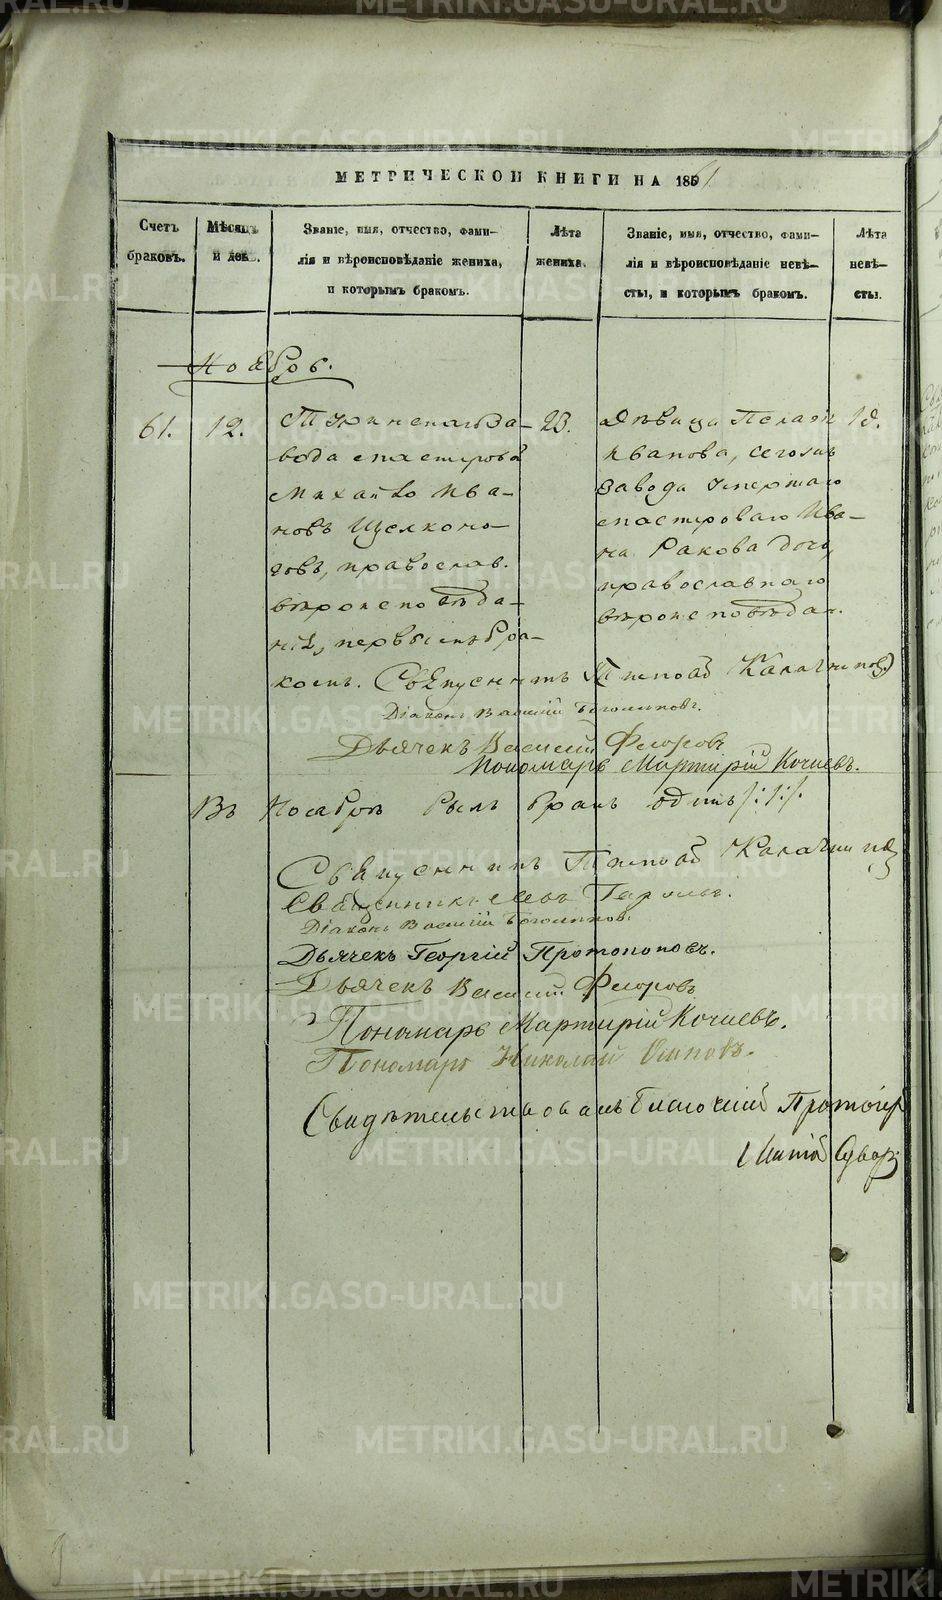 МЕТРИЧЕСКОЙ КНИГИ НА 1861
Счетъ браковъ.
Мѣсяцъ и ден.
Званіе, имя, отчество, фами-
лія и вѣроисповѣданіе жениха,
и которымъ бракомъ.
Лѣта
жениха.
Званіе, имя, отчество, фами-
лія и вѣроисповѣданіе невѣ-
сты, и которымъ бракомъ.
Лѣта
невѣ-
сты.
Ноябрь.
61.
12.
За-
вода мастеровой
Михайло Ива-
новъ Щелконо-
говъ, православ.
вѣроисповѣда-
нія, первымъ бра-
комъ.
23.
Дѣвица Пелагія
Иванова, сего же
завода умершаго
мастероваго Ива-
на Ракова дочь,
православнаго
вѣроисповѣда.
18.
Священникъ Тимофей Калачниковъ
Діаконъ Василій Богомоловъ.
Дьячекъ Василій Флоровъ
Пономарь Мартирій Кочневъ.
Въ Ноябрѣ былъ бракъ одинъ /:1:/.
Священникъ Тимофей Калачников
Священникъ Левъ
Діаконъ Василій
Дьячекъ Георгій Протопоповъ.
Дьячекъ Василій Флоровъ
Пономарь Мартирій Кочневъ.
Пономарь Николай Осиповъ.
Свидѣтельствовалъ Благочинный Протоіерей
METRIKI.GASO-URAL.RU